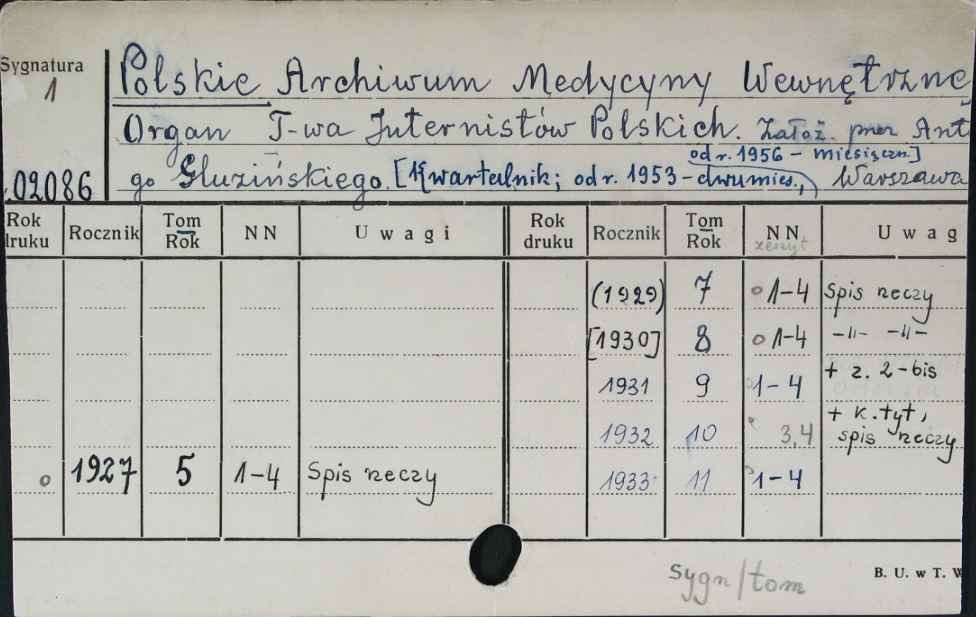 Sygnatura
1
Polskie Archiwum Medycyny Wewnętrznej
Organ T-wa Internistów Polskich. Założ. przez Ant
od r. 1956 - miesięczn.]
02086
go Gluzińskiego. [Kwartalnik; od r. 1953 - dwumies., Warszawa
Rok druku Rocznik Tom Rok NN Uwagi Rok druku Rocznik Tom Rok NN zeszyt Uwag
(1929) 7 o 1-4 Spis rzeczy
[1930] 8 o 1-4 -"- -"-
1931 9 1-4 + z. 2-bis
1932 10 3,4 + k. tyt, spis rzeczy
o 1927 5 1-4 Spis rzeczy 1933 11 1-4
Sygn/tom
B. U. w T. W